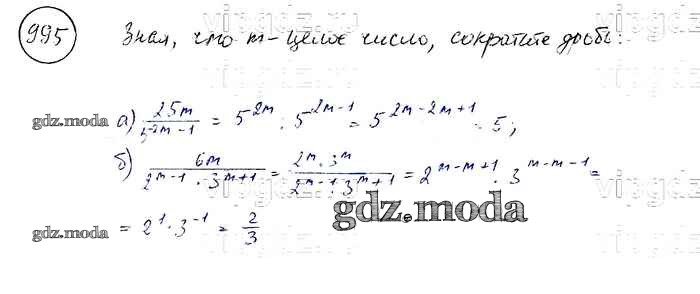 995 Зная, что m - целое число, сократите дробь:
а) 25^m / 5^(2m-1) = 5^2m : 5^(2m-1) = 5^(2m-2m+1) = 5;
gdz.moda
б) 6^m / 2^(m-1) · 3^(m+1) = 2^m · 3^m / 2^(m-1) · 3^(m+1) = 2^(m-m+1) · 3^(m-m-1) =
gdz.moda
= 2^1 · 3^-1 = 2/3
gdz.moda